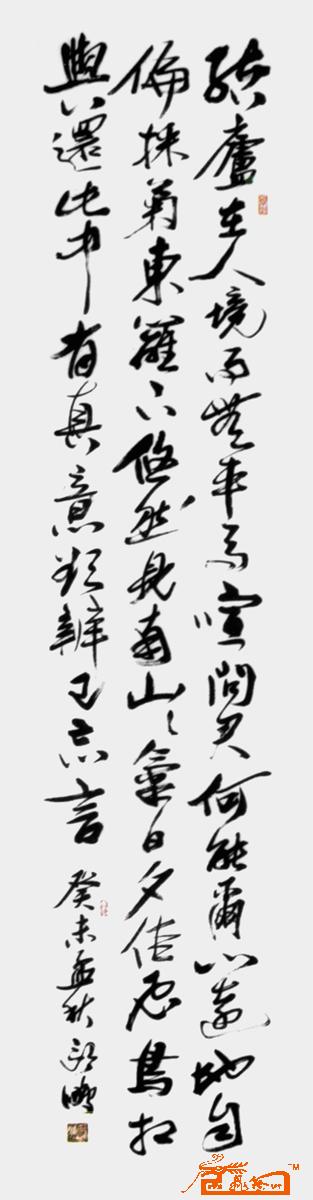 結廬在人境而無車馬喧問君何能爾心遠地自
偏採菊東籬下悠然見南山山氣日夕佳飛鳥相
與還此中有真意欲辨已忘言
癸未孟秋